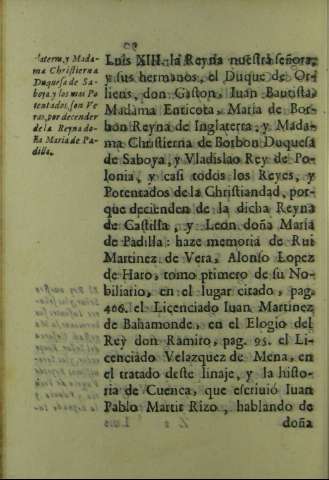 laterra, y Mada-
ma Christierna
Duquesa de Sa-
boya, y los mas Po
tentados, son Ve
ras, por decender
de la Reyna do-
ña Maria de Pa-
dilla.
Luis XIII. la Reyna nuestra señora,
y sus hermanos, el Duque de Or-
liens, don Gaston, Iuan Bautista,
Madama Enticota, Maria de Bor-
bon Reyna de Inglaterra, y Mada-
ma Christierna de Borbon Duquesa
de Saboya, y Vladislao Rey de Po-
lonia, y casi todos los Reyes, y
Potentados de la Christiandad, por-
que decienden de la dicha Reyna
de Castilla, y Leon doña Maria
de Padilla: haze memoria de Rui
Martinez de Vera, Alonso Lopez
de Haro, tomo primero de su No-
biliario, en el lugar citado, pag.
406. el Licenciado Iuan Martinez
de Bahamonde, en el Elogio del
Rey don Ramiro, pag. 95. el Li-
cenciado Velazquez de Mena, en
el tratado deste linaje, y la histo-
ria de Cuenca, que escriuiò Iuan
Pablo Martir Rizo, hablando de
doña